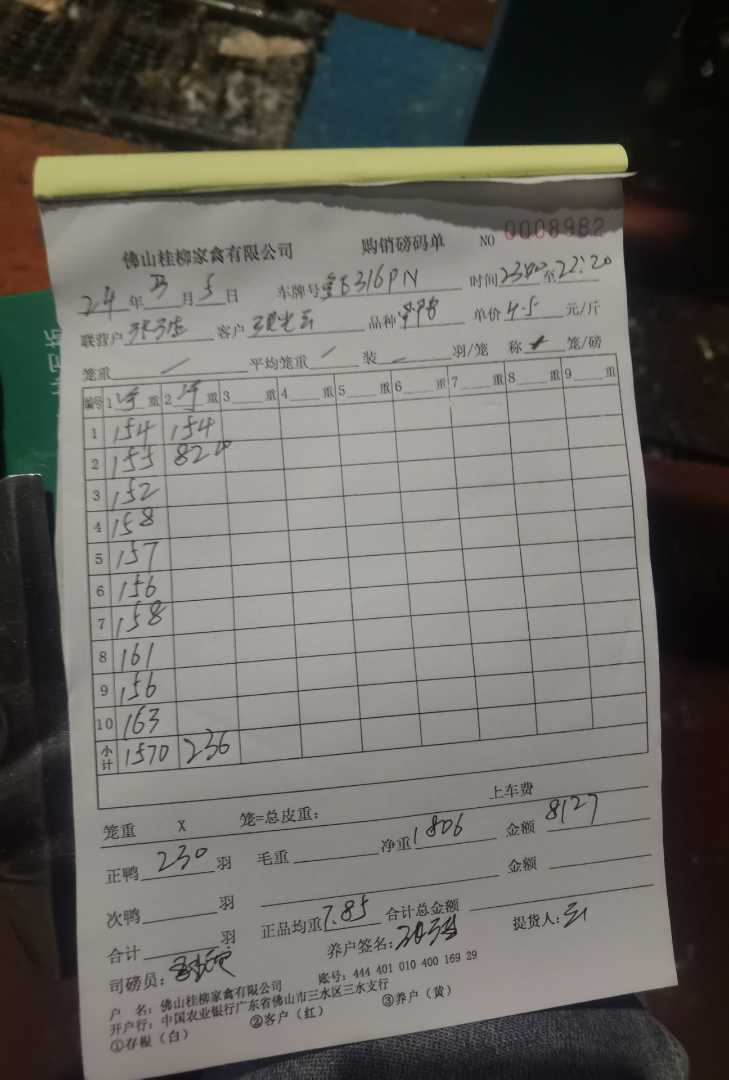 佛山桂柳家禽有限公司 购销磅码单 NO 0008982
24年3月5日 车牌号 E316PN 时间 至22:20
联营户 客户 品种 单价4.5元/斤
笼重 / 平均笼重 / 装 — 羽/笼 称 笼/磅
编号 1 净 重 2 净 重 3 重 4 重 5 重 6 重 7 重 8 重 9 重
1 154 154
2 155 82
3 152
4 158
5 157
6 156
7 158
8 161
9 156
10 163
小计 1570 236
上车费
笼重 X 笼=总皮重:
正鸭 230 羽 毛重 净重 1806 金额 8127
次鸭 羽 金额
合计 羽 正品均重 7.85 合计总金额
司磅员: 养户签名: 提货人:
户 名: 佛山桂柳家禽有限公司 账号: 444 401 010 400 169 29
开户行: 中国农业银行广东省佛山市三水区三水支行
①存根(白) ②客户(红) ③养户(黄)